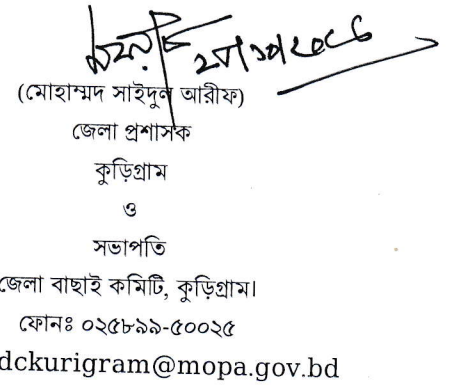 (মোহাম্মদ সাইদুল আরীফ)
জেলা প্রশাসক
কুড়িগ্রাম
ও
সভাপতি
জেলা বাছাই কমিটি, কুড়িগ্রাম।
ফোনঃ ০২৫৮৯৯-৫০০২৫
dckurigram@mopa.gov.bd